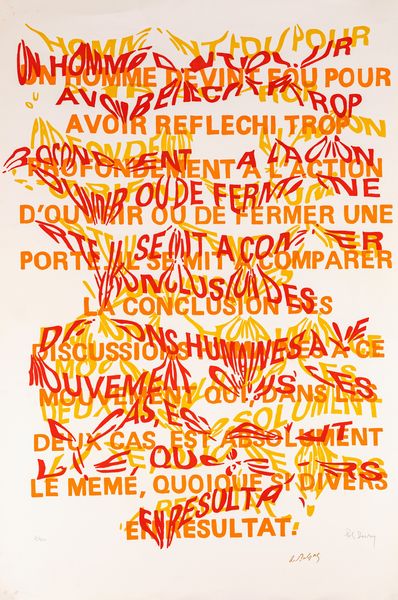 UN HOMME DEVINT FOU POUR
AVOIR REFLECHI TROP
PROFONDEMENT A L'ACTION
D'OUVRIR OU DE FERMER UNE
PORTE IL SE MIT A COMPARER
LA CONCLUSION DES
DISCUSSIONS HUMAINES A CE
MOUVEMENT QUI, DANS LES
DEUX CAS, EST ABSOLUMENT
LE MEME, QUOIQUE SI DIVERS
EN RESULTAT.